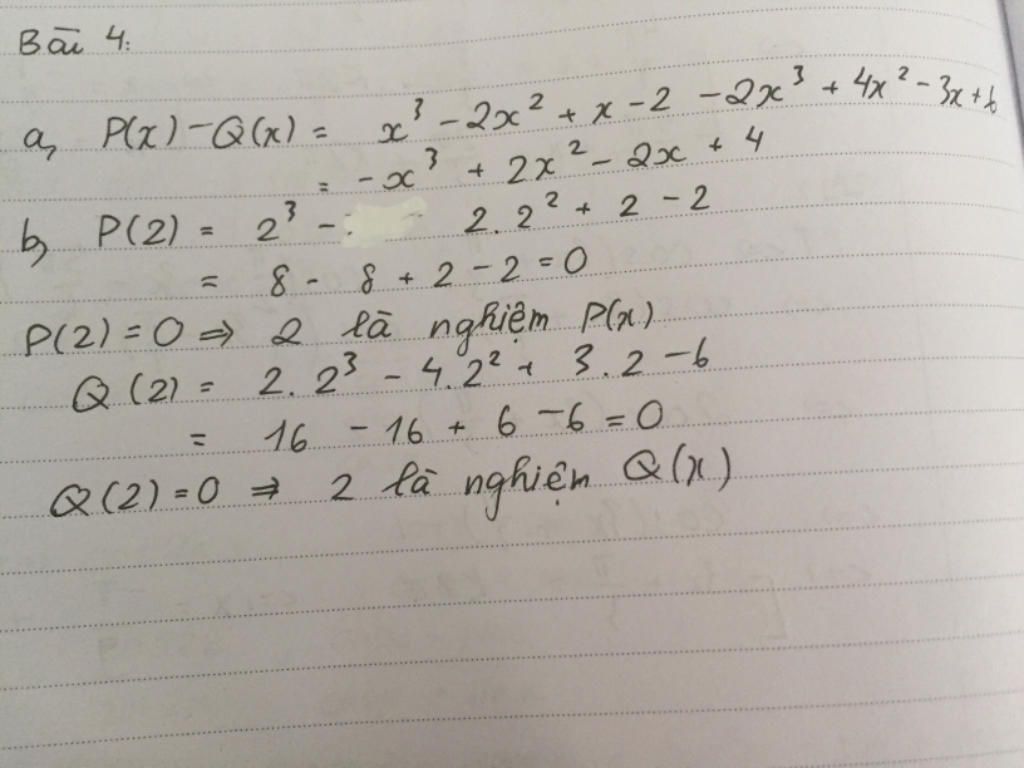 Bài 4:
a, P(x) - Q(x) = x³ - 2x² + x - 2 - 2x³ + 4x² - 3x + 6
= -x³ + 2x² - 2x + 4
b, P(2) = 2³ - 2.2² + 2 - 2
= 8 - 8 + 2 - 2 = 0
P(2) = 0 ⇒ 2 là nghiệm P(x)
Q(2) = 2.2³ - 4.2² + 3.2 - 6
= 16 - 16 + 6 - 6 = 0
Q(2) = 0 ⇒ 2 là nghiệm Q(x)